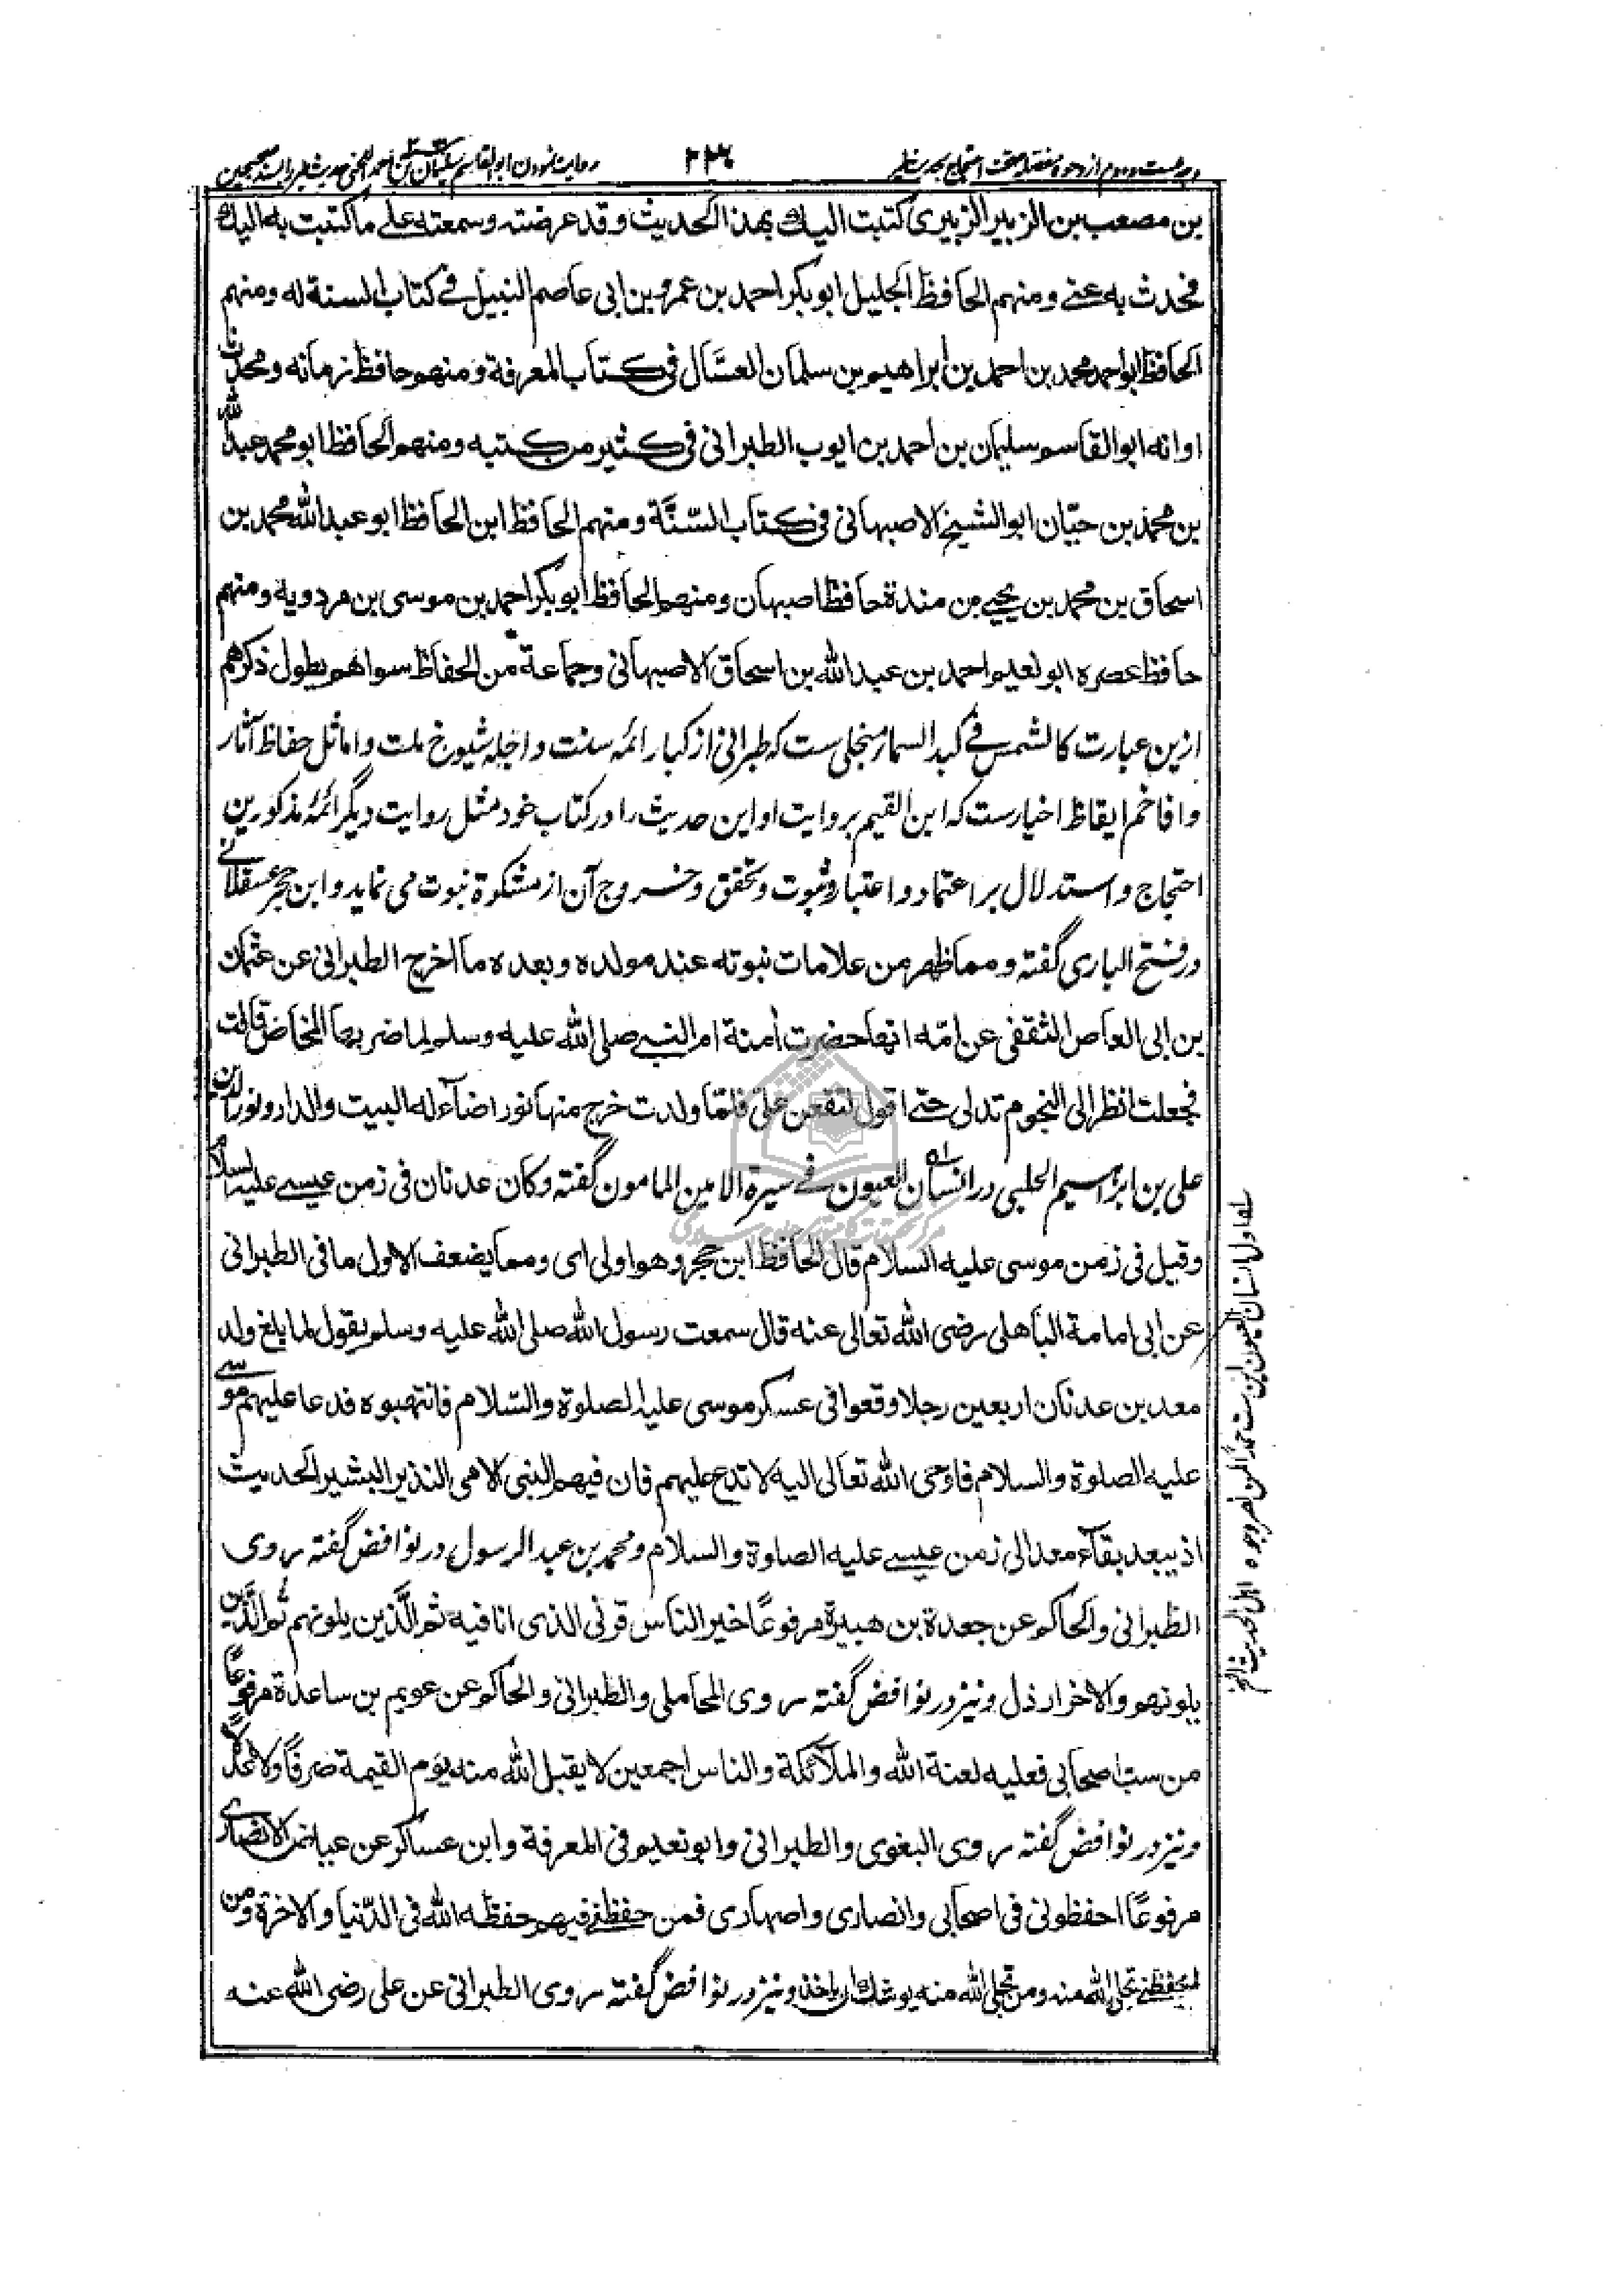 ۲۳۶
بن مصعب بن الزبير الزبيرى كتبت اليك بهذا الحديث وقد عرضته وسمعته على ما كتبت به اليك
فحدث به عنے ومنهم الحافظ الجليل ابو بكر احمد بن عمرو بن ابى عاصم النبيل فے كتاب السنة له ومنهم
الحافظ ابو احمد محمد بن احمد بن ابراهيم بن سلمان العسّال فى كتاب المعرفة ومنهم حافظ زمانه ومحدّث
اوانه ابو القاسم سليمان بن احمد بن ايوب الطبرانى فى كثير من كتبه ومنهم الحافظ ابو محمد عبد الله
بن محمد بن حيّان ابو الشيخ الاصبهانى فى كتاب السّنّة ومنهم الحافظ ابن الحافظ ابو عبد الله محمد بن
اسحاق بن محمد بن يحيے بن مندة حافظ اصبهان ومنهم الحافظ ابو بكر احمد بن موسى بن مردويه ومنهم
حافظ عصره ابو نعيم احمد بن عبد الله بن اسحاق الاصبهانى وجماعة من الحفاظ سواهم يطول ذكرهم
ازين عبارت كالشمس فے كبد السماء منجلى ست كه طبرانى از كبار ائمه سنت و اجله شيوخ ملت و اماثل حفاظ آثار
و افاخم ايقاظ اخيارست كه ابن القيم بروايت او اين حديث را در كتاب خود مثل روايت ديگر ائمهٔ مذكورين
احتجاج و استدلال بر اعتماد و اعتبار و ثبوت و تحقق و خروج آن از مشكوة نبوت مى نمايد و ابن حجر عسقلانے
در فتح البارى گفته ومما ظهر من علامات نبوته عند مولده وبعده ما اخرج الطبرانى عن عثمان
بن ابى العاص الثقفى عن امّه انها حضرت آمنة ام النبے صلى الله عليه وسلم لما ضربها المخاض قالت
فجعلت انظر الى النجوم تدلى حتے اقول لتقعن علىّ فلمّا ولدت خرج منها نور اضآء له البيت والدار ونور الدين
على بن ابراهيم الحلبى در انسان العيون فے سيرة الامين المامون گفته وكان عدنان فى زمن عيسے عليه السلام
وقيل فى زمن موسى عليه السلام قال الحافظ ابن حجر وهو اولى اى ومما يضعف الاول ما فى الطبرانى
عن ابى امامة الباهلى رضى الله تعالى عنه قال سمعت رسول الله صلى الله عليه وسلم يقول لما بلغ ولد
معد بن عدنان اربعين رجلا وقعوا فى عسكر موسى عليه الصلوة والسّلام فانتهبوه فدعا عليهم موسے
عليه الصلوة والسلام فاوحى الله تعالى اليه لا تدع عليهم فان فيهم النبى الامى النذير البشير الحديث
اذ يبعد بقآء معد الى زمن عيسے عليه الصلوة والسلام ومحمد بن عبد الرسول در نوافض گفته روى
الطبرانى والحاكم عن جعدة بن هبيرة مرفوعًا خير الناس قرنى الذى انا فيه ثم الّذين يلونهم ثم الّذين
يلونهم والاخر ارذل ونيز در نوافض گفته روى المحاملى والطبرانى والحاكم عن عويم بن ساعدة مرفوعًا
من سبّ اصحابى فعليه لعنة الله والملآئكة والناس اجمعين لا يقبل الله منه يوم القيمة صرفًا ولا عدلًا
ونيز در نوافض گفته روى البغوى والطبرانى وابو نعيم فى المعرفة وابن عساكر عن عياض الانصارى
مرفوعًا احفظونى فى اصحابى وانصارى واصهارى فمن حفظنے فيهم حفظه الله فى الدّنيا والاخرة ومن
لم يحفظنے تخلى الله منه ومن تخلى الله منه يوشك ان ياخذه ونيز در نوافض گفته روى الطبرانى عن على رضى الله عنه